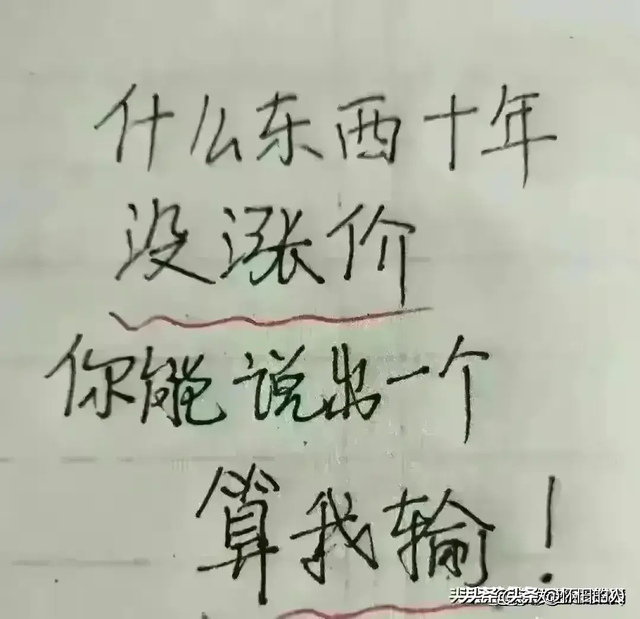 什么东西十年
没涨价
你能说出一个
算我输！